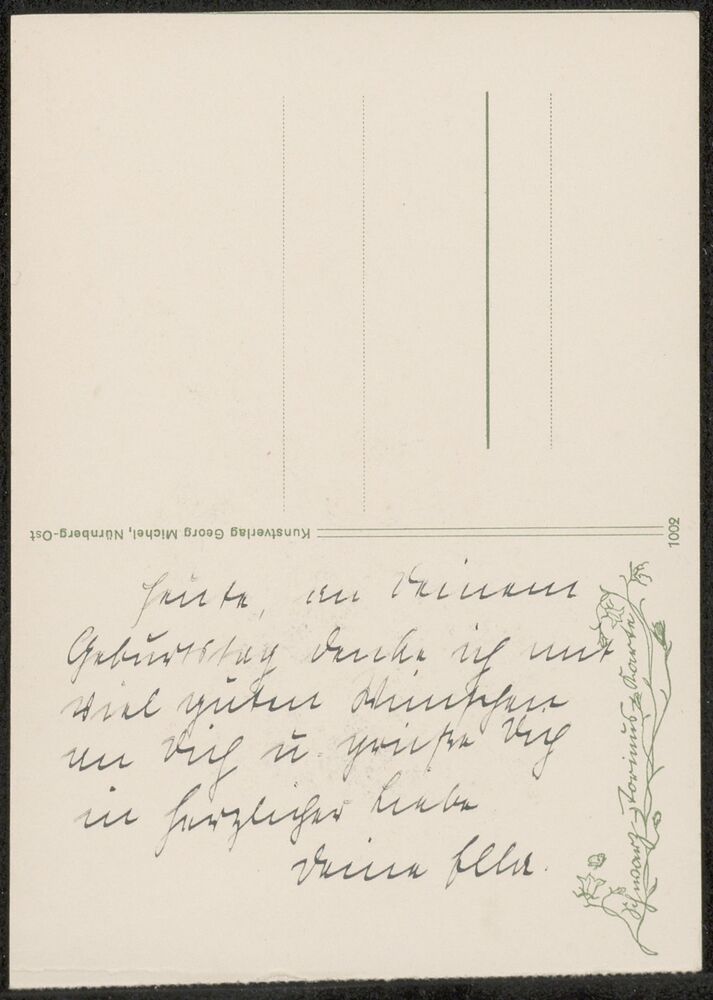 Heute, an Deinem
Geburtstag denke ich mit
viel guten Wünschen
an Dich u. grüße Dich
in herzlicher Liebe
Deine Ella.
Kunstverlag Georg Michel, Nürnberg-Ost
1002
Schwarz-Torinus-Karte